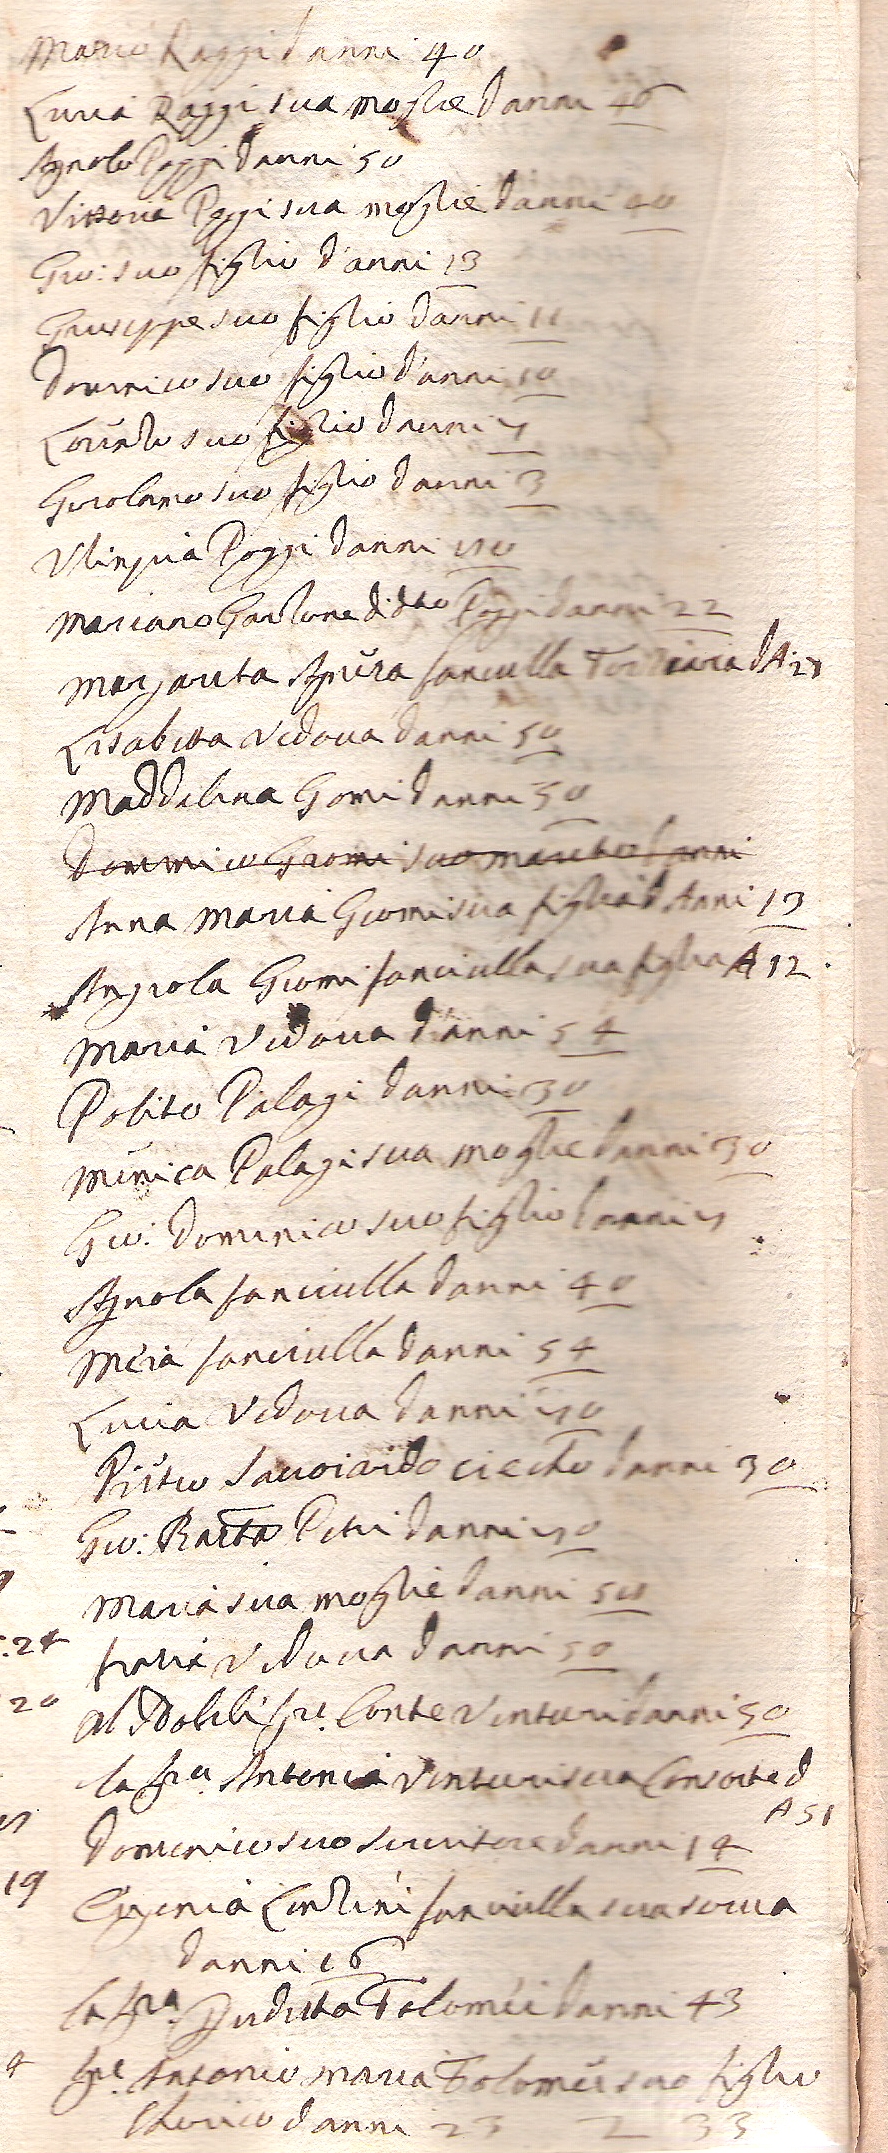 Mario Raggi d'anni 40
Lucia Raggi sua moglie d'anni 46
Agnolo Poggi d'anni 50
Vittoria Poggi sua moglie d'anni 40
Gio: suo figlio d'anni 13
Giuseppe suo figlio d'anni 11
Domenico suo figlio d'anni 10
Lorenzo suo figlio d'anni 7
Girolamo suo figlio d'anni 3
Poggi d'anni
Mariano detto Poggi d'anni 22
Margarita fanciulla d A: 27
Lisabetta Vedova d'anni 50
Maddalena Giomi d'anni 50
Domenico Giomi suo marito d'anni
Anna Maria Giomi sua figlia d'Anni 13
Angiola Giomi fanciulla sua figlia A 12.
Maria Vedova d'anni 54
Polito Palagi d'anni 30
Menica Palagi sua moglie d'anni 30
Gio: Domenico suo figlio d'anni 7
Agnola fanciulla d'anni 40
Mea fanciulla d'anni 54
Lucia Vedova d'anni 70
Pietro Savoiardo ciecho d'anni 30
Gio: Batta Petri d'anni 70
Maria sua moglie d'anni 50
Vedova d'anni 50
Sre. Conte Venturi d'anni 50
la Sra. Antonia Venturi sua Consorte d
A 51
Domenico suo servitore d'anni 14
Eugenia Contini fanciulla sua serva
d'anni 16
la Sra. Tolomei d'anni 43
Sre. Antonio Maria Tolomei suo figlio
Cherico d'anni 23 2 33